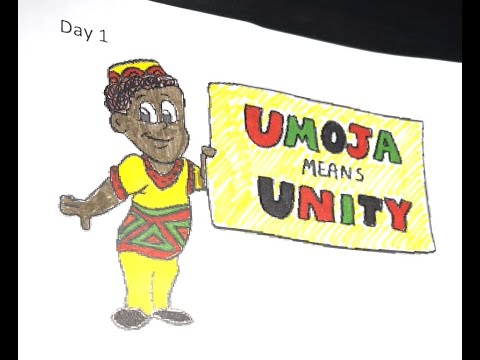 Day 1
UMOJA
MEANS
UNITY